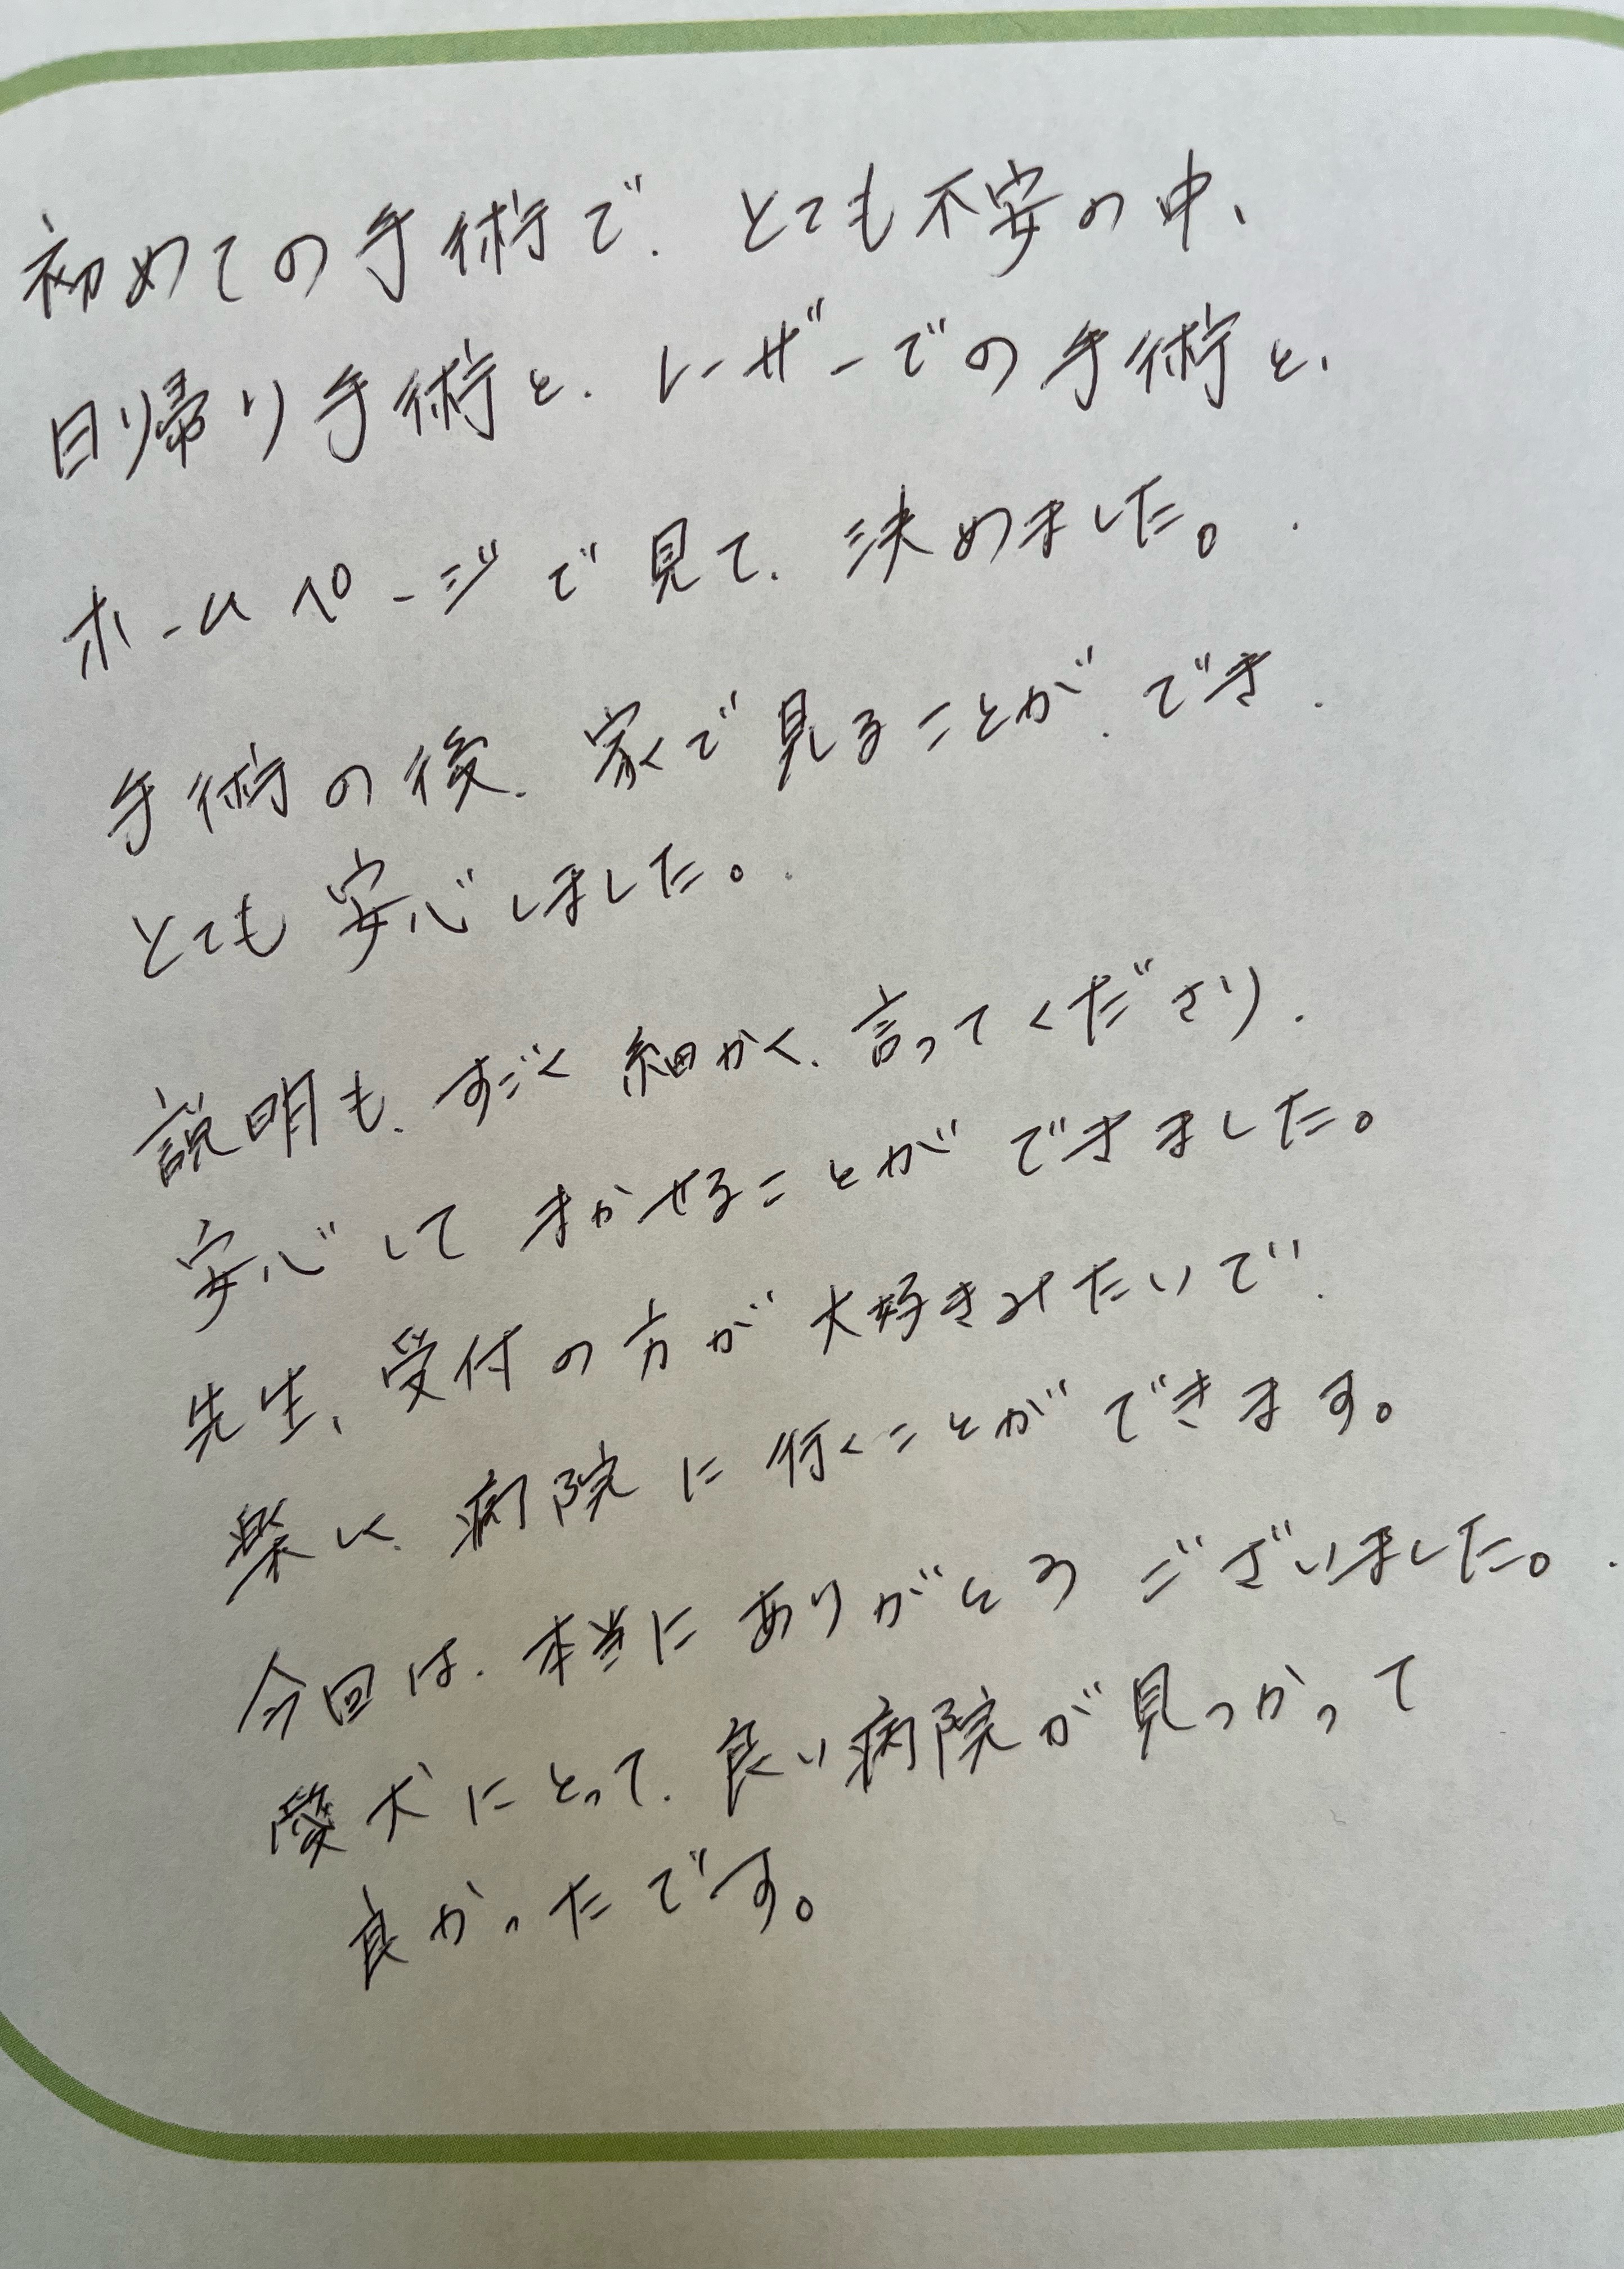 初めての手術で、とても不安の中、
日帰り手術と、レーザーでの手術と、
ホームページで見て、決めました。
手術の後、家で見ることが、でき、
とても安心しました。
説明も、すごく細かく、言ってくださり、
安心してまかせることができました。
先生、受付の方が大好きみたいで、
楽しく、病院に行くことができます。
今回は、本当にありがとうございました。
愛犬にとって、良い病院が見つかって
良かったです。